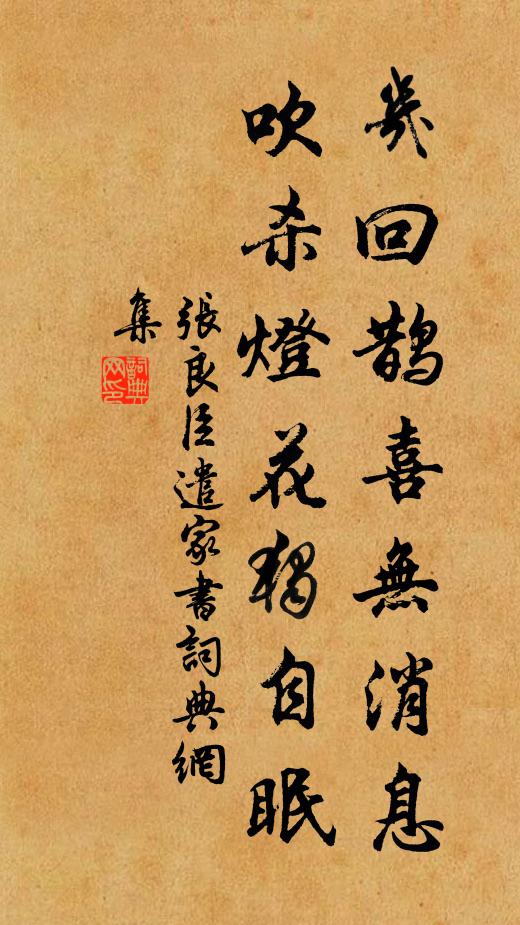 幾回鹊喜無消息
吹杀燈花独自眠
張良臣遣家書詞典網
集
詞典
网印